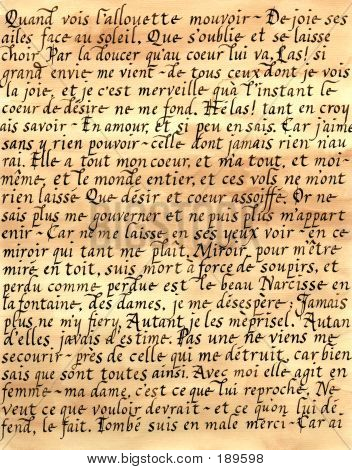 Quand vois l'allouette mouvoir - De joie ses
ailes face au soleil. Que s'oublie et se laisse
choir. Par la doucer qu'au coeur lui va, Las! si
grand envie me vient - de tous ceux dont je vois
la joie, et je c'est merveille qu'à l'instant le
coeur de désire ne me fond. Helas! tant en croy
ais savoir - En amour, et si peu en sais. Car j'aime
sans y rien pouvoir - celle dont jamais rien n'au
rai. Elle a tout mon coeur, et m'a tout, et moi-
même, et le monde entier, et ces vols ne m'ont
rien laissé Que désir et coeur assoiffé. Or ne
sais plus me gouverner et ne puis plus m'appart
enir - Car ne me laisse en ses yeux voir - en ce
miroir qui tant me plait. Miroir, pour m'être
miré en toit, suis mort à force de soupirs, et
perdu comme perdue est le beau Narcisse en
la fontaine, des dames, je me désespère: Jamais
plus ne m'y fiery, Autant je les méprisel. Autan
d'elles j'avais d'estime. Pas une ne viens me
secourir - près de celle qui me détruit, car bien
sais que sont toutes ainsi. Avec moi elle agit en
femme - ma dame, c'est ce que lui reproche, Ne
veut ce que vouloir devrait - et ce qu'on lui dé
fend, le fait. Tombé suis en male merci - Car ai
189598